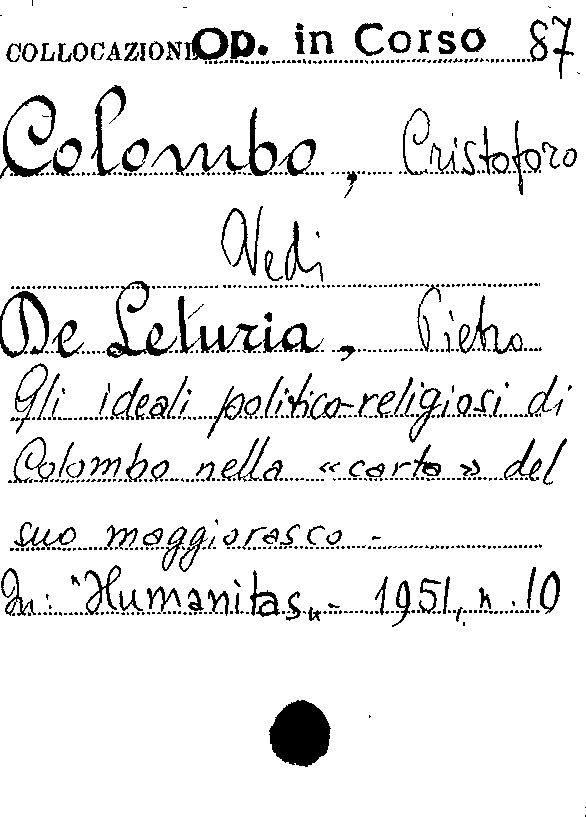 COLLOCAZIONE Op. in Corso 87
Colombo, Cristoforo
Vedi
De Leturia, Pietro
Gli ideali politico-religiosi di
Colombo nella «carta» del
suo maggiorasco -
In: "Humanitas„ - 1951, n. 10